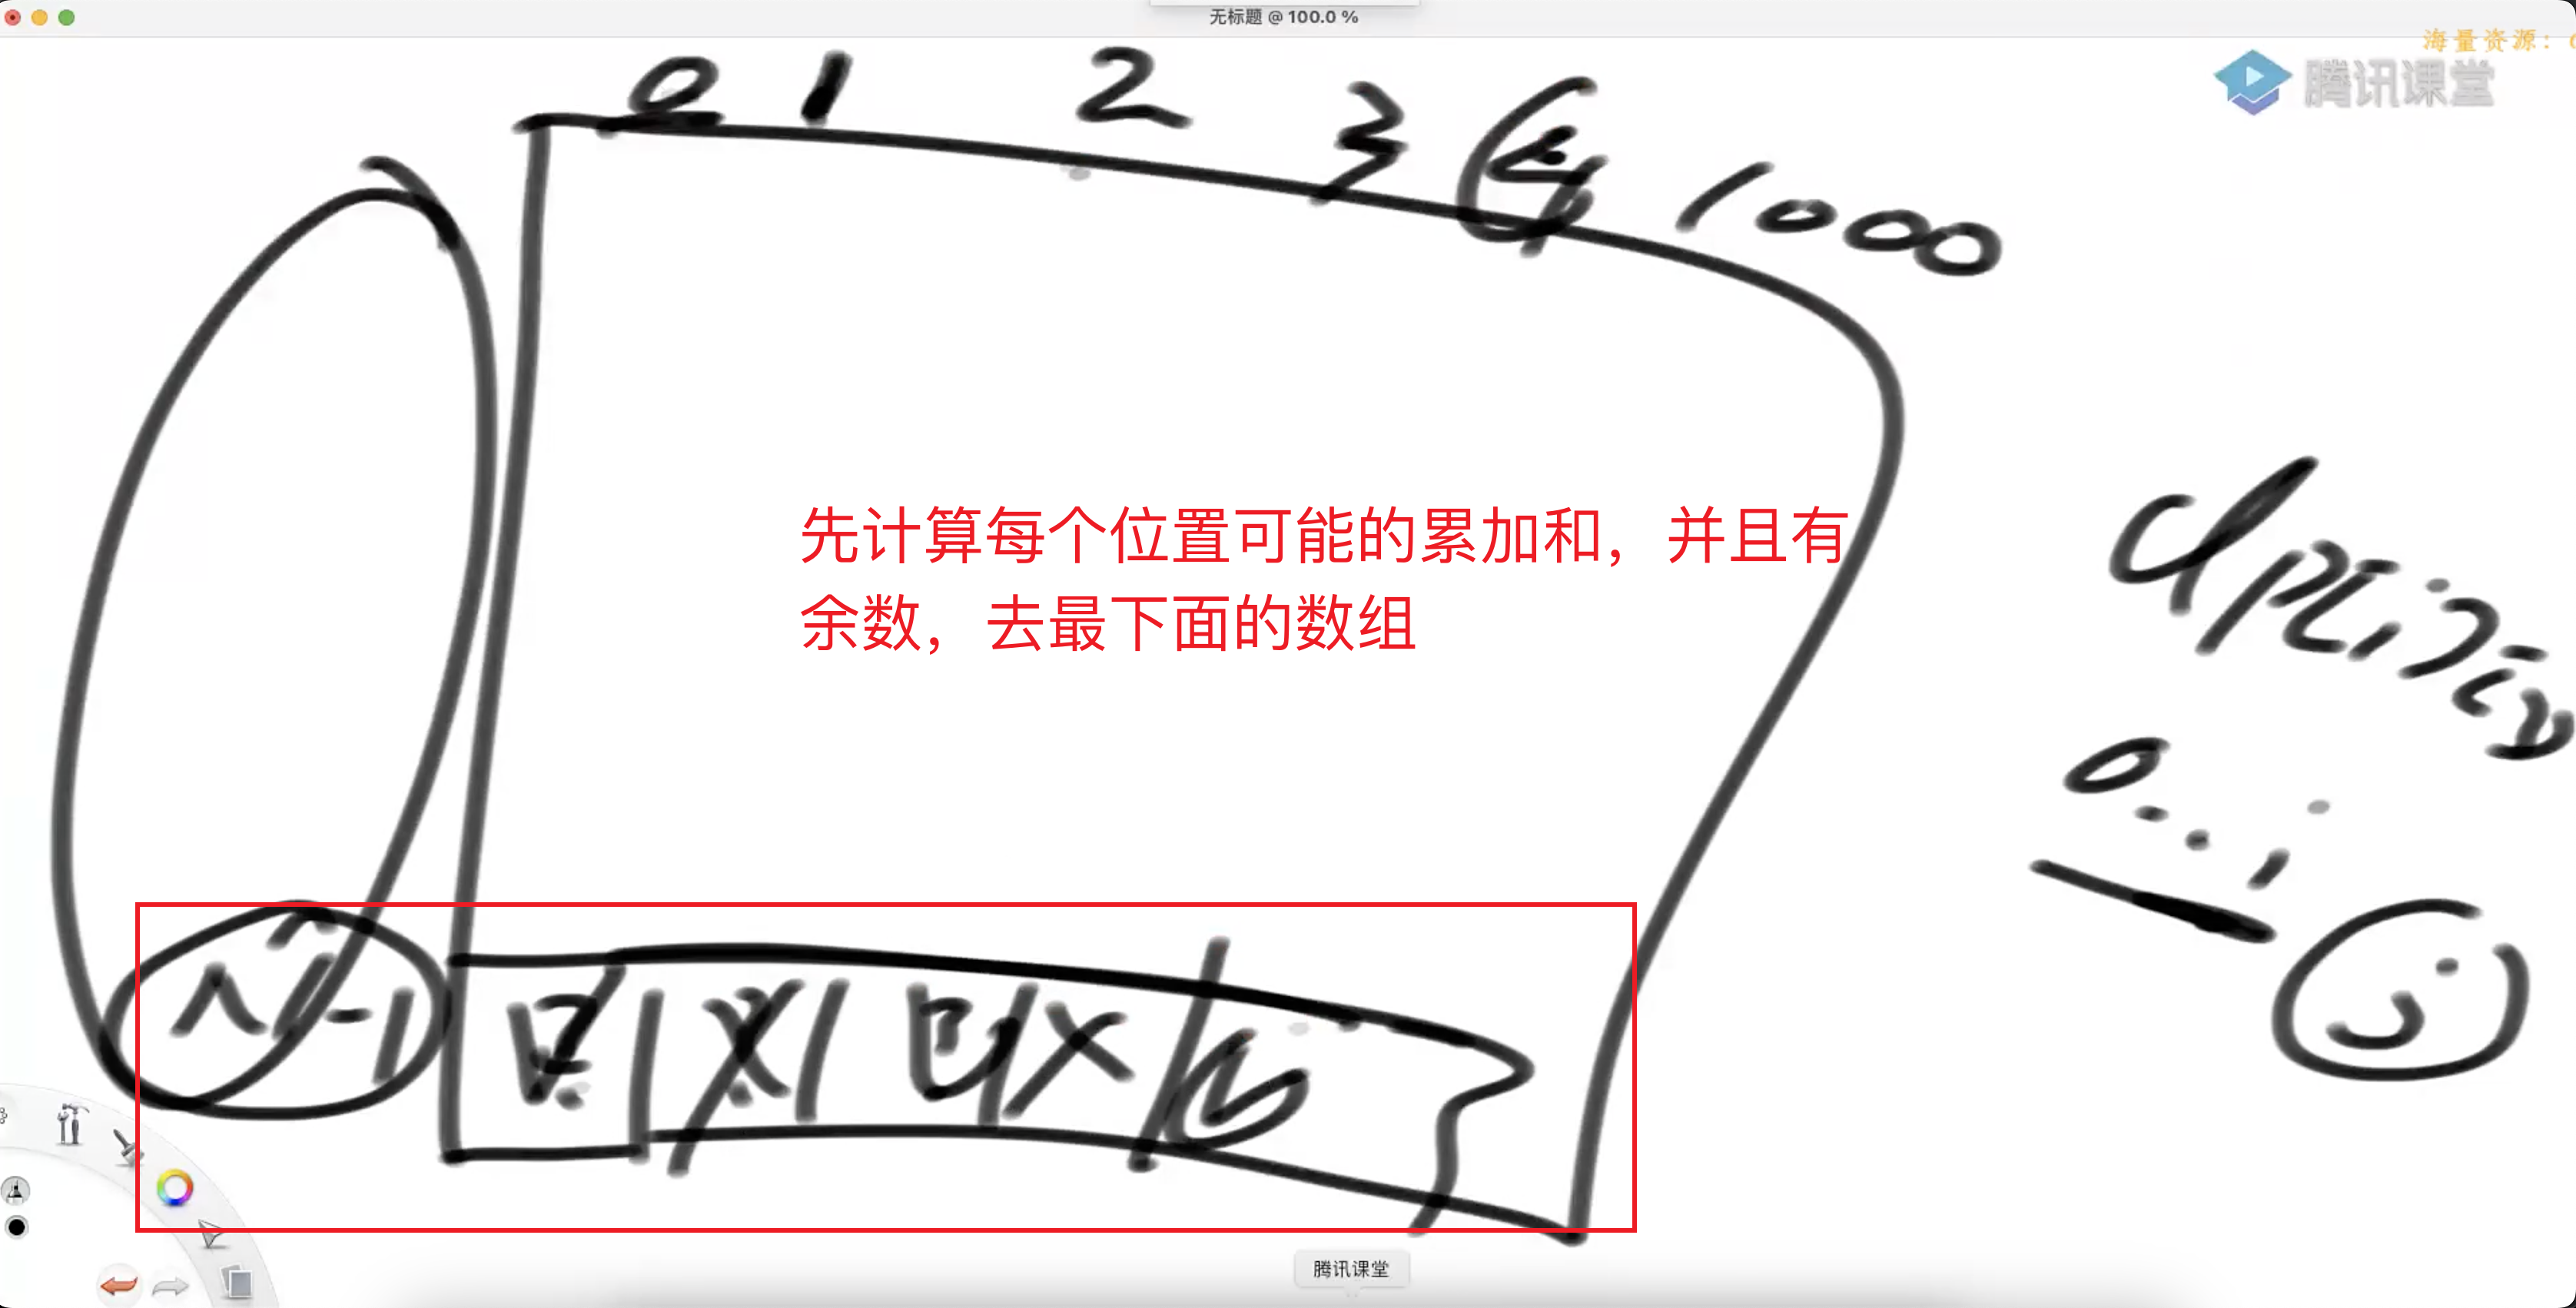 无标题 @ 100.0 %
海量资源：
腾讯课堂
0 1 2 3 4 1000
先计算每个位置可能的累加和，并且有
余数，去最下面的数组
dp[i][j]
0...i
j
N-1
腾讯课堂